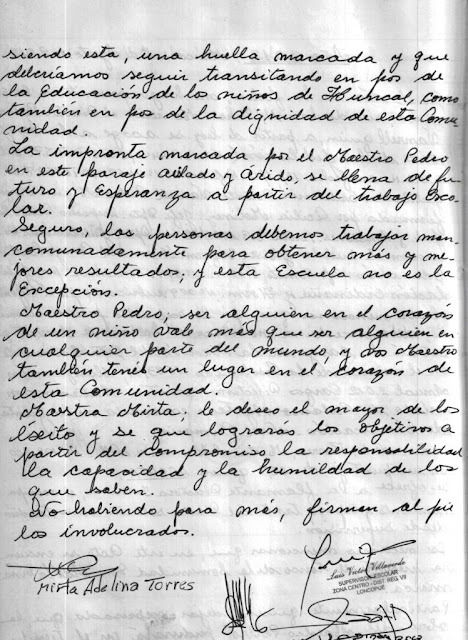 siendo esta, una huella marcada y que
debcríamos seguir transitando en pos de
la Educación de los niños de Huncal, como
también en pos de la dignidad de esta Comu
nidad.
La impronta marcada por el Maestro Pedro
en este paraje aislado y árido, se llena de fu
turo y Esperanza a partir del trabajo Esco
lar.
Seguro, las personas debemos trabajar man
comunadamente para obtener más y me
jores resultados, y esta Escuela no es la
Excepción.
Maestro Pedro; ser alguien en el corazón
de un niño vale más que ser alguien en
cualquier parte del mundo, y vos Maestro
también tenés un lugar en el corazón de
esta Comunidad.
Maestra Mirta; le deseo el mayor de los
éxito y se que lograrás los objetivos a
partir del compromiso la responsabilidad
la capacidad y la humildad de los
que saben.
No habiendo para más, firman al pie
los involucrados.
Mirta Adelina Torres
Luis Victor Villaverde
SUPERVISOR ESCOLAR
ZONA CENTRO - DIST REG. VII
LONCOPUE